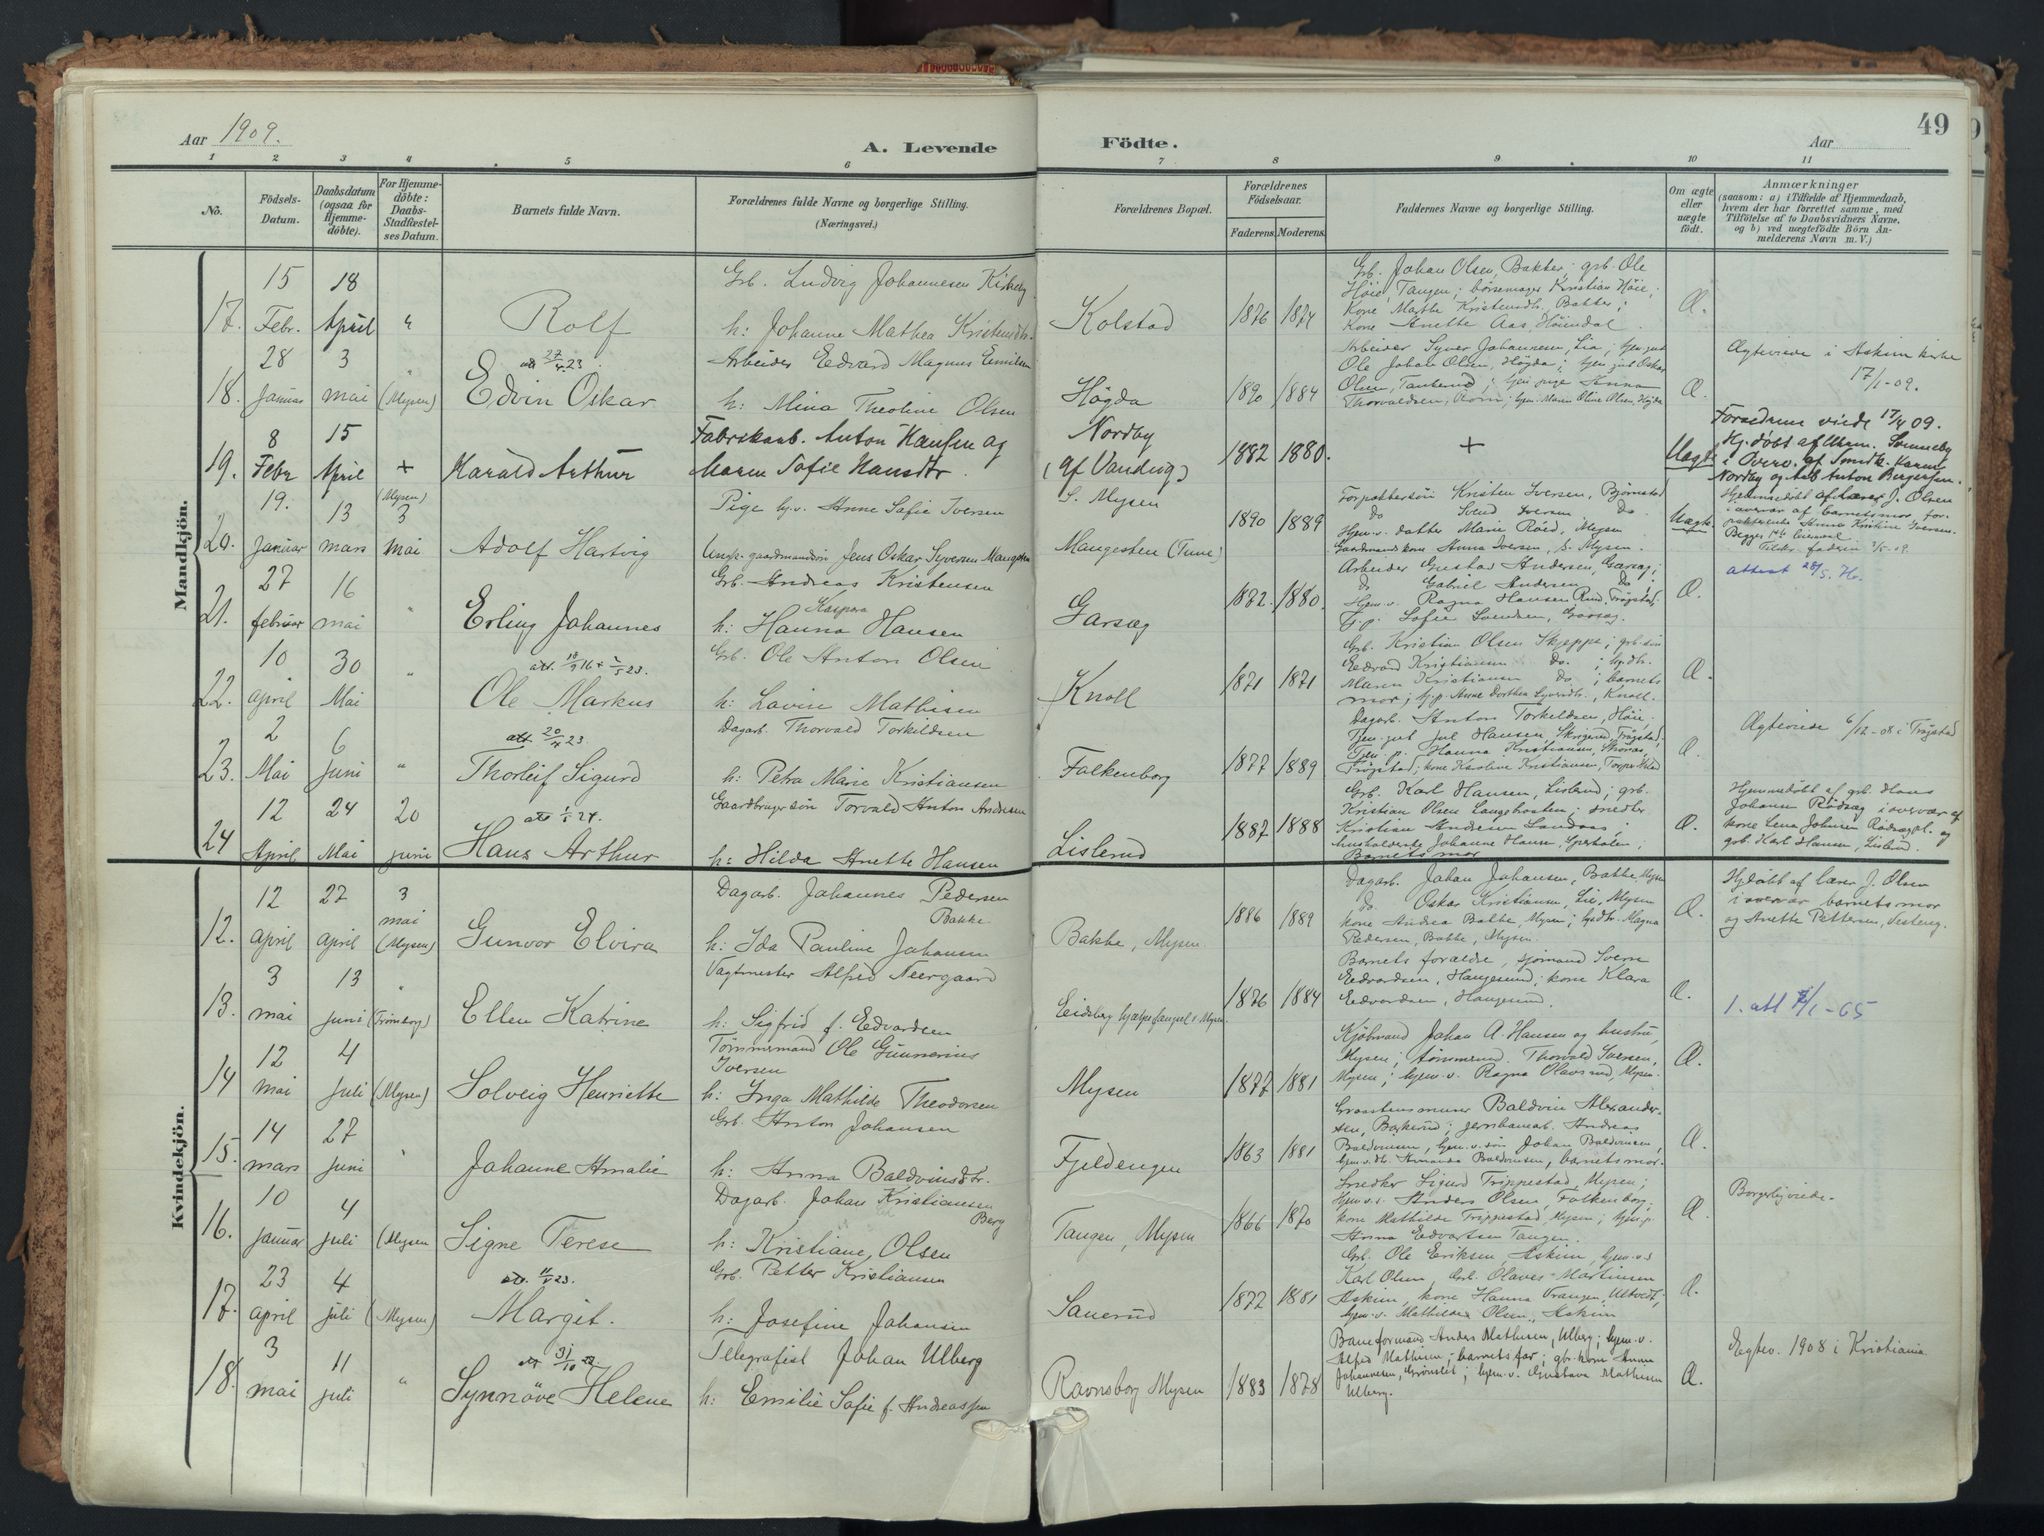 Aar 1909.
A. Levende
Födte.
Aar
49
1 2 3 4 5 6 7 8 9 10 11
No.
Födsels-
Datum.
Daabsdatum
(ogsaa for
Hjemme-
döbte).
For Hjemme-
döbte:
Daabs-
Stadfæstel-
ses Datum.
Barnets fulde Navn.
Forældrenes fulde Navne og borgerlige Stilling.
(Næringsvei.)
Forældrenes Bopæl.
Forældrenes
Födselsaar.
Faderens.
Moderens.
Faddernes Navne og borgerlige Stilling.
Om ægte
eller
uægte
födt.
Anmærkninger
(saasom: a) i Tilfælde af Hjemmedaab,
hvem der har forrettet samme, med
Tilföielse af to Daabsvidners Navne,
og b) ved uægtefödte Börn An-
melderens Navn m. V.)
Mandkjön.
17. 15 Febr. 18 April "
Rolf
Grb. Ludvig Johannesen Kirkeby
h: Johanne Mathea Kristensdtr.
Kolstad
1876 1874
Grb. Johan Olsen, Bakker; grb. Ole
Höie, Tangen; börsemager Kristian Höie;
kone Marthe Kristensdtr. Bakker;
kone Anette Aas, Höiendal.
Æ.
18. 28 Januar 3 mai " (Mysen)
att 27/4 23
Edvin Oskar
Arbeider Edvard Magnus Emilsen
h: Mina Theoline Olsen
Högda
1890 1884
Arbeider Syver Johannesen, Lia; tjen.gut
Ole Johan Olsen, Högda; tjen.gut Oskar
Olsen, ; tjen. pige Anna
Thorvaldsen, ; hjm. Maren Oline Olsen, Högda
Æ.
Ægteviede i Askim kirke
17/1-09.
19. 8 Febr 15 April +
Harald Arthur
Fabrikarb. Anton Hansen og
Maren Sofie Hansdtr.
Nordby
(af Vandvig)
1882 1880.
+
Uægte
Forældrene viede 17/4 09.
Hj. döbt af
i Overv. af Smedk. Karen
Nordby og Arb Anton Bergersen.
20. 19. Januar 13 mars (Mysen) 3 mai
Adolf Hartvig
Pige hj.v. Anne Sofie Iversen
Ungk. gaardmandsön Jens Oskar Syversen Mangesten
S. Mysen
Mangesten (Tune)
1890 1889
Forpaktersön Kristen Iversen, Bjørnstad
do Svend Iversen do
Hjem.v. datter Marie Röed, Mysen
Gaardmandskone Anna Iversen, S. Mysen.
Uægte
Hjemmedöbt af lærer J. Olsen
i overvær af barnets mor, for-
pakterenke Anna Kristine Iversen.
Begges 1ste leiermaal
Tilstr. faderen 3/5-09.
attest 28/5. H.
21. 27 februar 16 mai "
Erling Johannes
Grb. Andreas Kristensen
Kaspara
h: Hanna Hansen
Garsæg
1872. 1880.
Arbeider Gustav Andersen, Garsæg;
do Gabriel Andersen do;
Hjem.v. Ragna Hansen Rud, Trögstad.
Tj.p. Sofie Svendsen, Garsæg.
Æ.
22. 10 april 30 Mai "
att. 18/9 16 + 2/5 23.
Ole Markus
Grb. Ole Anton Olsen
h: Lavine Mathisen
Knoll
1871 1871
Grb. Kristian Olsen Skjeppe; grb.sön
Edvard Kristiansen do.; hj.dtr.
Maren Kristiansen do; barnets
mor; tj.p. Anne Dorthea Syversdtr., Knoll.
Æ.
23. 2 Mai 6 Juni "
att 20/4 23
Thorleif Sigurd
Dagarb. Thorvald Torkildsen
h: Petra Marie Kristiansen
Falkenborg
1877 1889
Dagarb. Anton Torkildsen, Höie.
Tjen.gut Jul Hansen, Skrigerud, Trögstad;
Tjen. p. Hanna Kristiansen, ,
Trögstad; kone Karoline Kristiansen,
Æ.
Ægteviede 6/12-08 i Trögstad
24 12 April 24 Mai 20 juni
att 1/1 24.
Hans Arthur
Gaardbruger sön Torvald Anton Andresen
h: Hilda Anette Hansen
Lislerud
1887 1888
Grb. Karl Hansen, Lislerud; grb.
Kristian Olsen Langholen; snedker
Kristian Andersen ;
husholderske Johanne Hansen, ;
Barnets mor
Æ.
Hjemmedöbt af grb. Hans
Johansen Rödsæg i overvær af
kone Lena Johnsen Rödsæg pl. og
grb. Karl Hansen, Lislerud.
Kvindekjön.
12. 12 april 27 april 3 mai (Mysen)
Gunvor Elvira
Dagarb. Johannes Pedersen
Bakke.
h: Ida Pauline Johansen
Bakke, Mysen.
1886 1889
Dagarb. Johan Johansen, Bakke, Mysen
do Oskar Kristiansen, Lie, Mysen
kone Andrea Bakke, Mysen; hj.dtr. Magna
Pedersen, Bakke, Mysen.
Æ.
Hjdöbt af lærer J. Olsen
i overvær barnets mor
og Anette Pettersen, .
13. 3 mai 13 juni " (Trömborg)
Ellen Katrine
Vagtmester Alfred Neergaard
h: Sigfrid f. Edvardsen
Eidsberg hjælpefængsel v. Mysen.
1876 1884
Barnets forældre, sjömand Sverre
Edvardsen, Haugesund; kone Klara
Edvardsen, Haugesund.
Æ.
1. att 7/1-65
14 12 mai 4 juli (Mysen)
Solveig Henriette
Tömmermand Ole Gunnerius
Iversen
h: Inga Mathilde Theodorsen
Mysen
1877 1881
Kjöbmand Johan A. Hansen og hustru,
Mysen; tömmerm. Thorvald Iversen,
Mysen; hjem.v. Ragna Olavsrud, Mysen.
Æ.
15. 14 mars 27 juni "
Johanne Amalie
Grb. Anton Johansen
h: Anna Baldvinsdtr.
Fjeldengen
1863 1881
Graastensmurer Baldvin Alexander-
sen, Borkerud; jernbanearb. Andreas
Baldvinsen, hjem.v. sön Johan Baldvinsen,
hjem.v. dtr. Amanda Baldvinsen, barnets mor.
Æ.
16. 10 Januar 4 juli (Mysen
Signe Terese
Dagarb. Johan Kristiansen
Berg
h: Kristiane Olsen
Tangen, Mysen
1866 1870
Snedker Sigurd Trippestad, Mysen;
Hjem.v.s. Anders Olsen, Falkenborg;
kone Mathilde Trippestad, Mysen; hjem.p.
Anna Edvartsen Tangen.
Æ.
Borgerligviede.
17. 23 april 4 juli (Mysen)
att. 11/5 23.
Margit.
Grb. Petter Kristiansen
h: Josefine Johansen
Sauerud
1872 1881
Grb. Ole Eriksen, Askim, hjem.v.s
Karl Olsen, Grb. Olaves Martinsen
Askim, kone Hanna Vrangen, Ultvedt;
hjem.v. Mathilde Olsen, Askim
Æ.
18. 3 mai 11 juli "
att 31/10 22
Synnöve Helene
Telegrafist Johan Ulberg
h: Emilie Sofie f. Andreassen
Ravnsborg Mysen
1883 1878
Baneformand Anders Mathisen, Ulberg; hjem.v.
Alfred Mathisen; barnets far; gbr.kone Anne
Johannesen, Grönslet; hjem.v. Gustava Mathisen
Ulberg.
Æ.
Egtev. 1908 i Kristiania